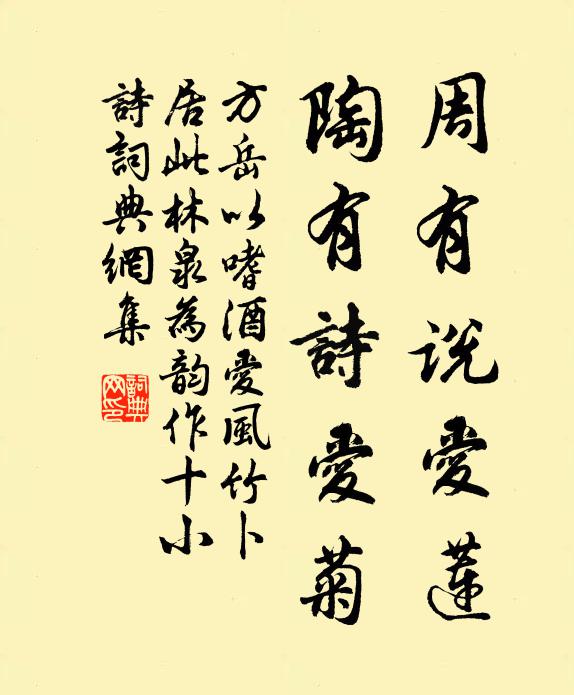 周有说愛蓮
陶有詩愛菊
方岳以嗜酒愛風竹卜
居此林泉為韵作十小
詩詞典網集
詞典网印